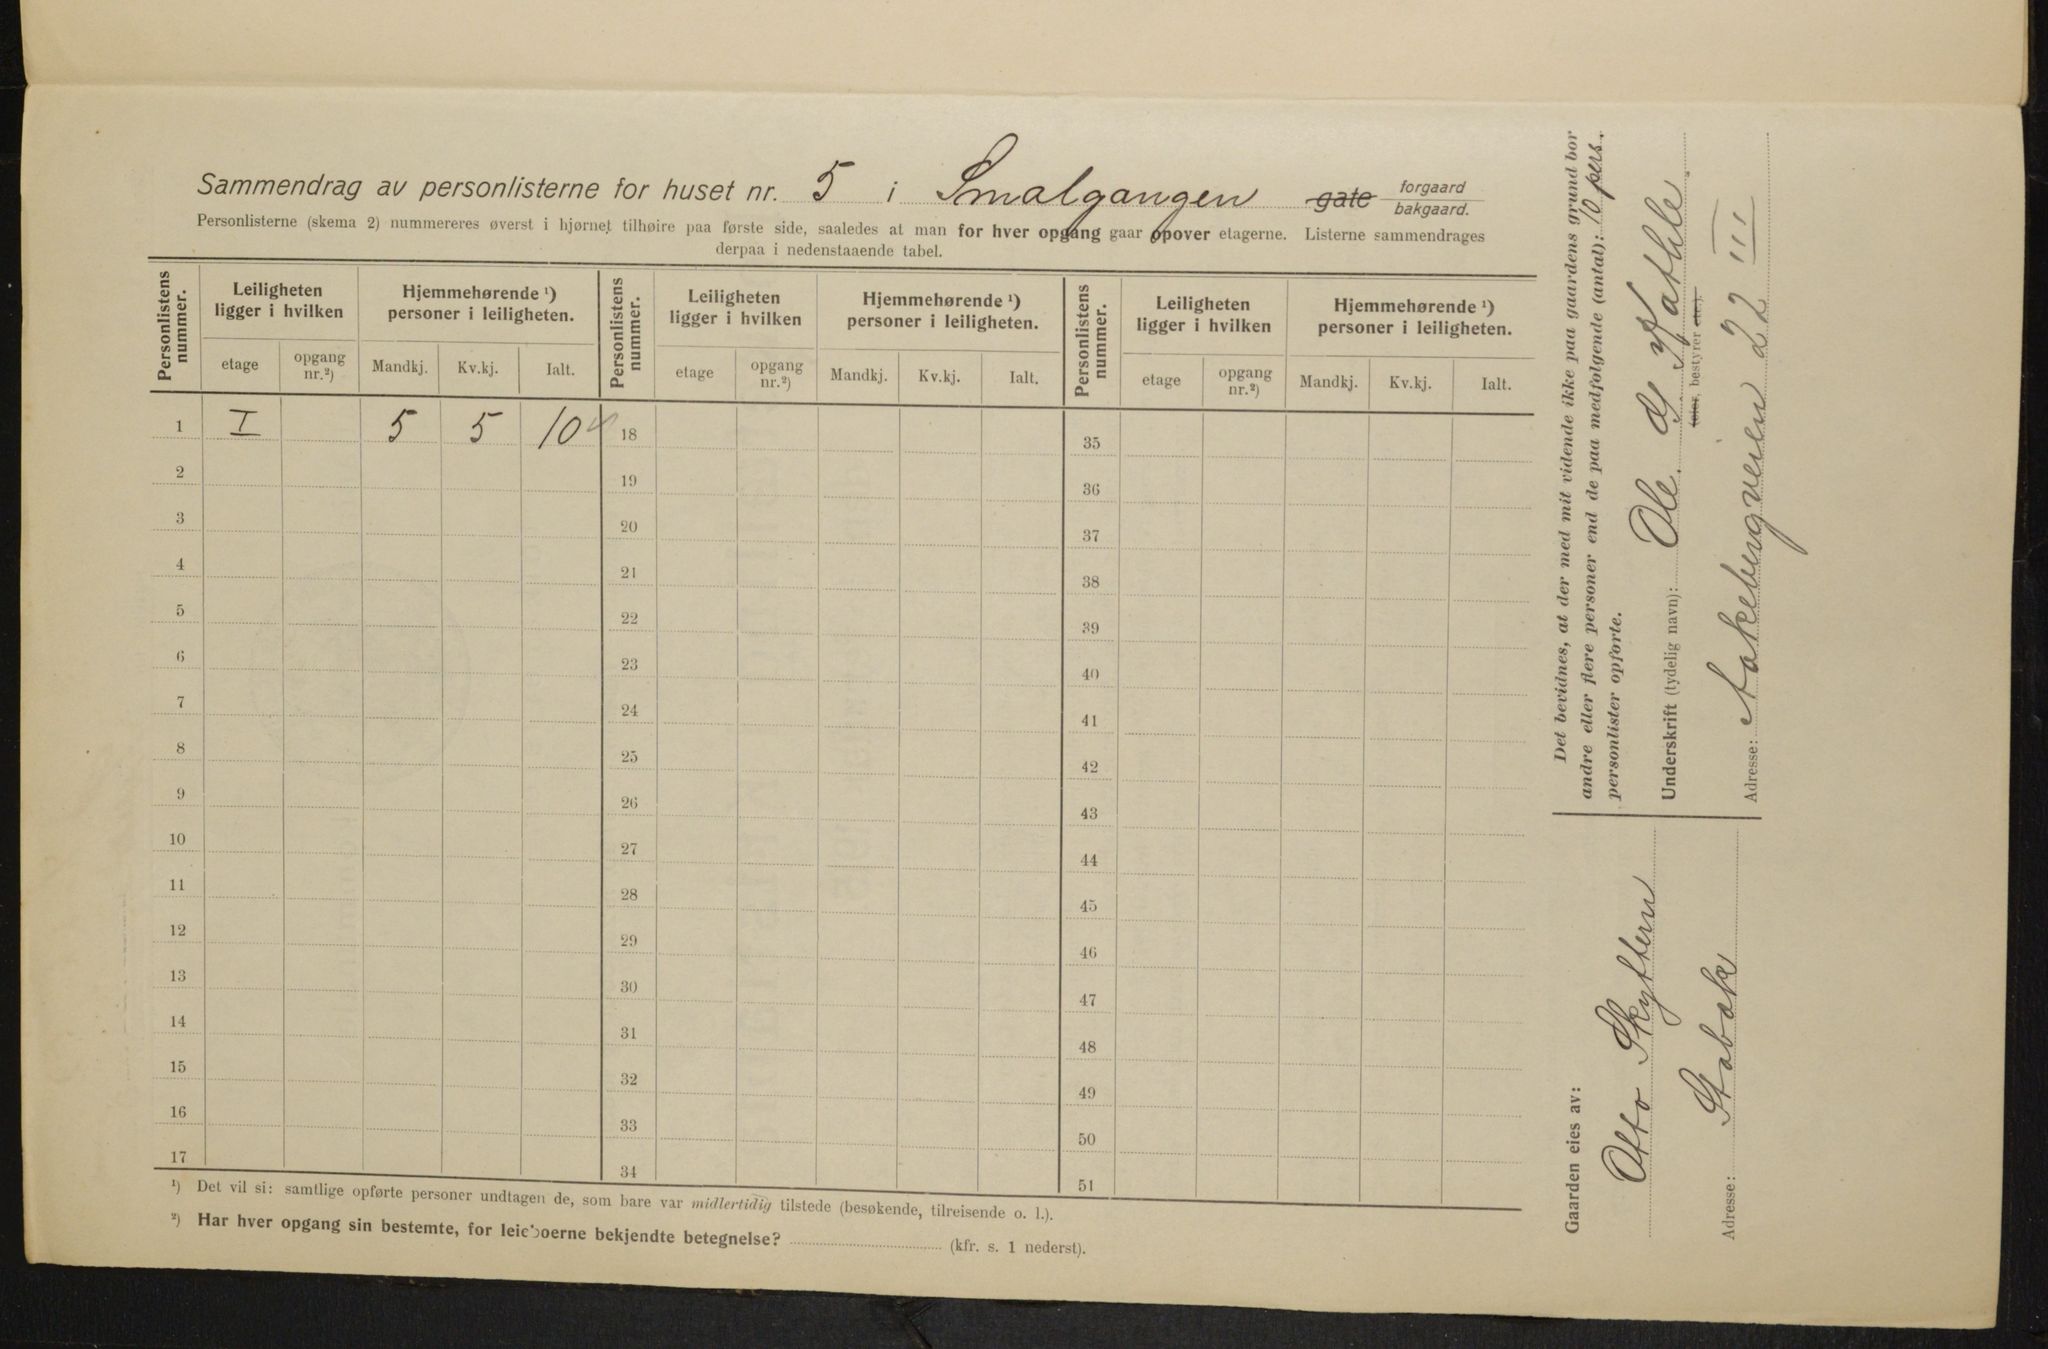 Sammendrag av personlisterne for huset nr. 5 i Smalgangen gate forgaard bakgaard.
Personlisterne (skema 2) nummereres øverst i hjørnet tilhøire paa første side, saaledes at man for hver opgang gaar opover etagerne. Listerne sammendrages
derpaa i nedenstaaende tabel.
Personlistens nummer. Leiligheten ligger i hvilken Hjemmehørende ¹) personer i leiligheten. Personlistens nummer. Leiligheten ligger i hvilken Hjemmehørende ¹) personer i leiligheten. Personlistens nummer. Leiligheten ligger i hvilken Hjemmehørende ¹) personer i leiligheten.
etage opgang nr.²) Mandkj. Kv.kj. Ialt. etage opgang nr.²) Mandkj. Kv.kj. Ialt. etage opgang nr.²) Mandkj. Kv.kj. Ialt.
1 I 5 5 10 18 35
2 19 36
3 20 37
4 21 38
5 22 39
6 23 40
7 24 41
8 25 42
9 26 43
10 27 44
11 28 45
12 29 46
13 30 47
14 31 48
15 32 49
16 33 50
17 34 51
¹) Det vil si: samtlige opførte personer undtagen de, som bare var midlertidig tilstede (besøkende, tilreisende o. l.).
²) Har hver opgang sin bestemte, for leieboerne bekjendte betegnelse? (kfr. s. 1 nederst).
Det bevidnes, at der med mit vidende ikke paa gaardens grund bor
andre eller flere personer end de paa medfølgende (antal): 10 pers.
personlister opførte.
Underskrift (tydelig navn): Ole G
(eier, bestyrer etc).
Adresse: Aakebergveien 22 III
Gaarden eies av:
Otto Skyttern
Adresse: Stabæk